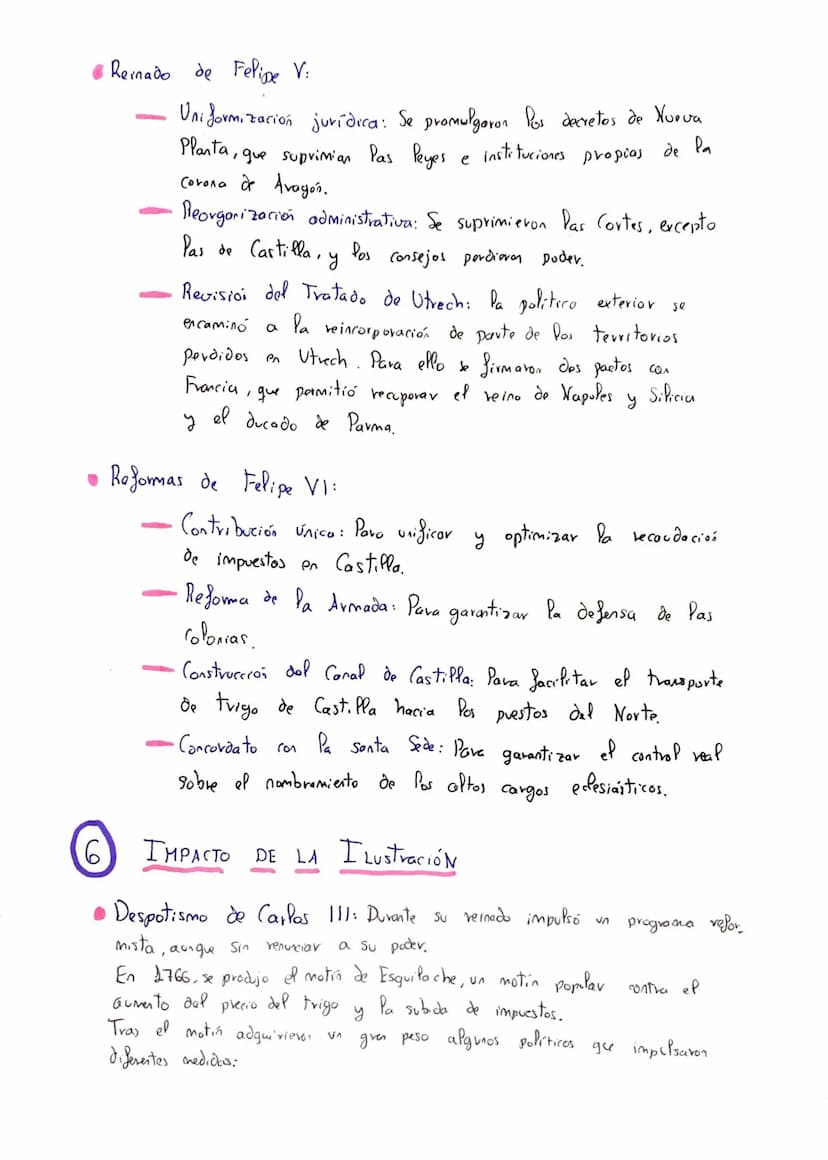 Reinado de Felipe V:
Uniformización jurídica: Se promulgaron los decretos de Nueva
Planta, que suprimian las leyes e instituciones propias de la
corona de Aragón.
Reorganización administrativa: Se suprimieron las Cortes, excepto
las de Castilla, y los consejos perdieron poder.
Revisión del Tratado de Utrech: la política exterior se
encaminó a la reincorporación de parte de los territorios
perdidos en Utrech. Para ello se firmaron dos pactos con
Francia, que permitió recuperar el reino de Napoles y Silicia
y el ducado de Parma.
Reformas de Felipe VI:
Contribución única: Para unificar y optimizar la recaudación
de impuestos en Castilla.
Reforma de la Armada: Para garantizar la defensa de las
colonias.
Construcción del Canal de Castilla: Para facilitar el transporte
de trigo de Castilla hacia los puestos del Norte.
Concordato con la santa Sede: Para garantizar el control real
sobre el nombramiento de los altos cargos eclesiásticos.
6 IMPACTO DE LA ILUSTRACIÓN
Despotismo de Carlos III: Durante su reinado impulsó un programa refor_
mista, aunque sin renunciar a su poder.
En 1766, se produjo el motín de Esquilache, un motín popular contra el
aumento del precio del trigo y la subida de impuestos.
Tras el motín adquirieron un gran peso algunos políticos que impulsaron
diferentes medidas: